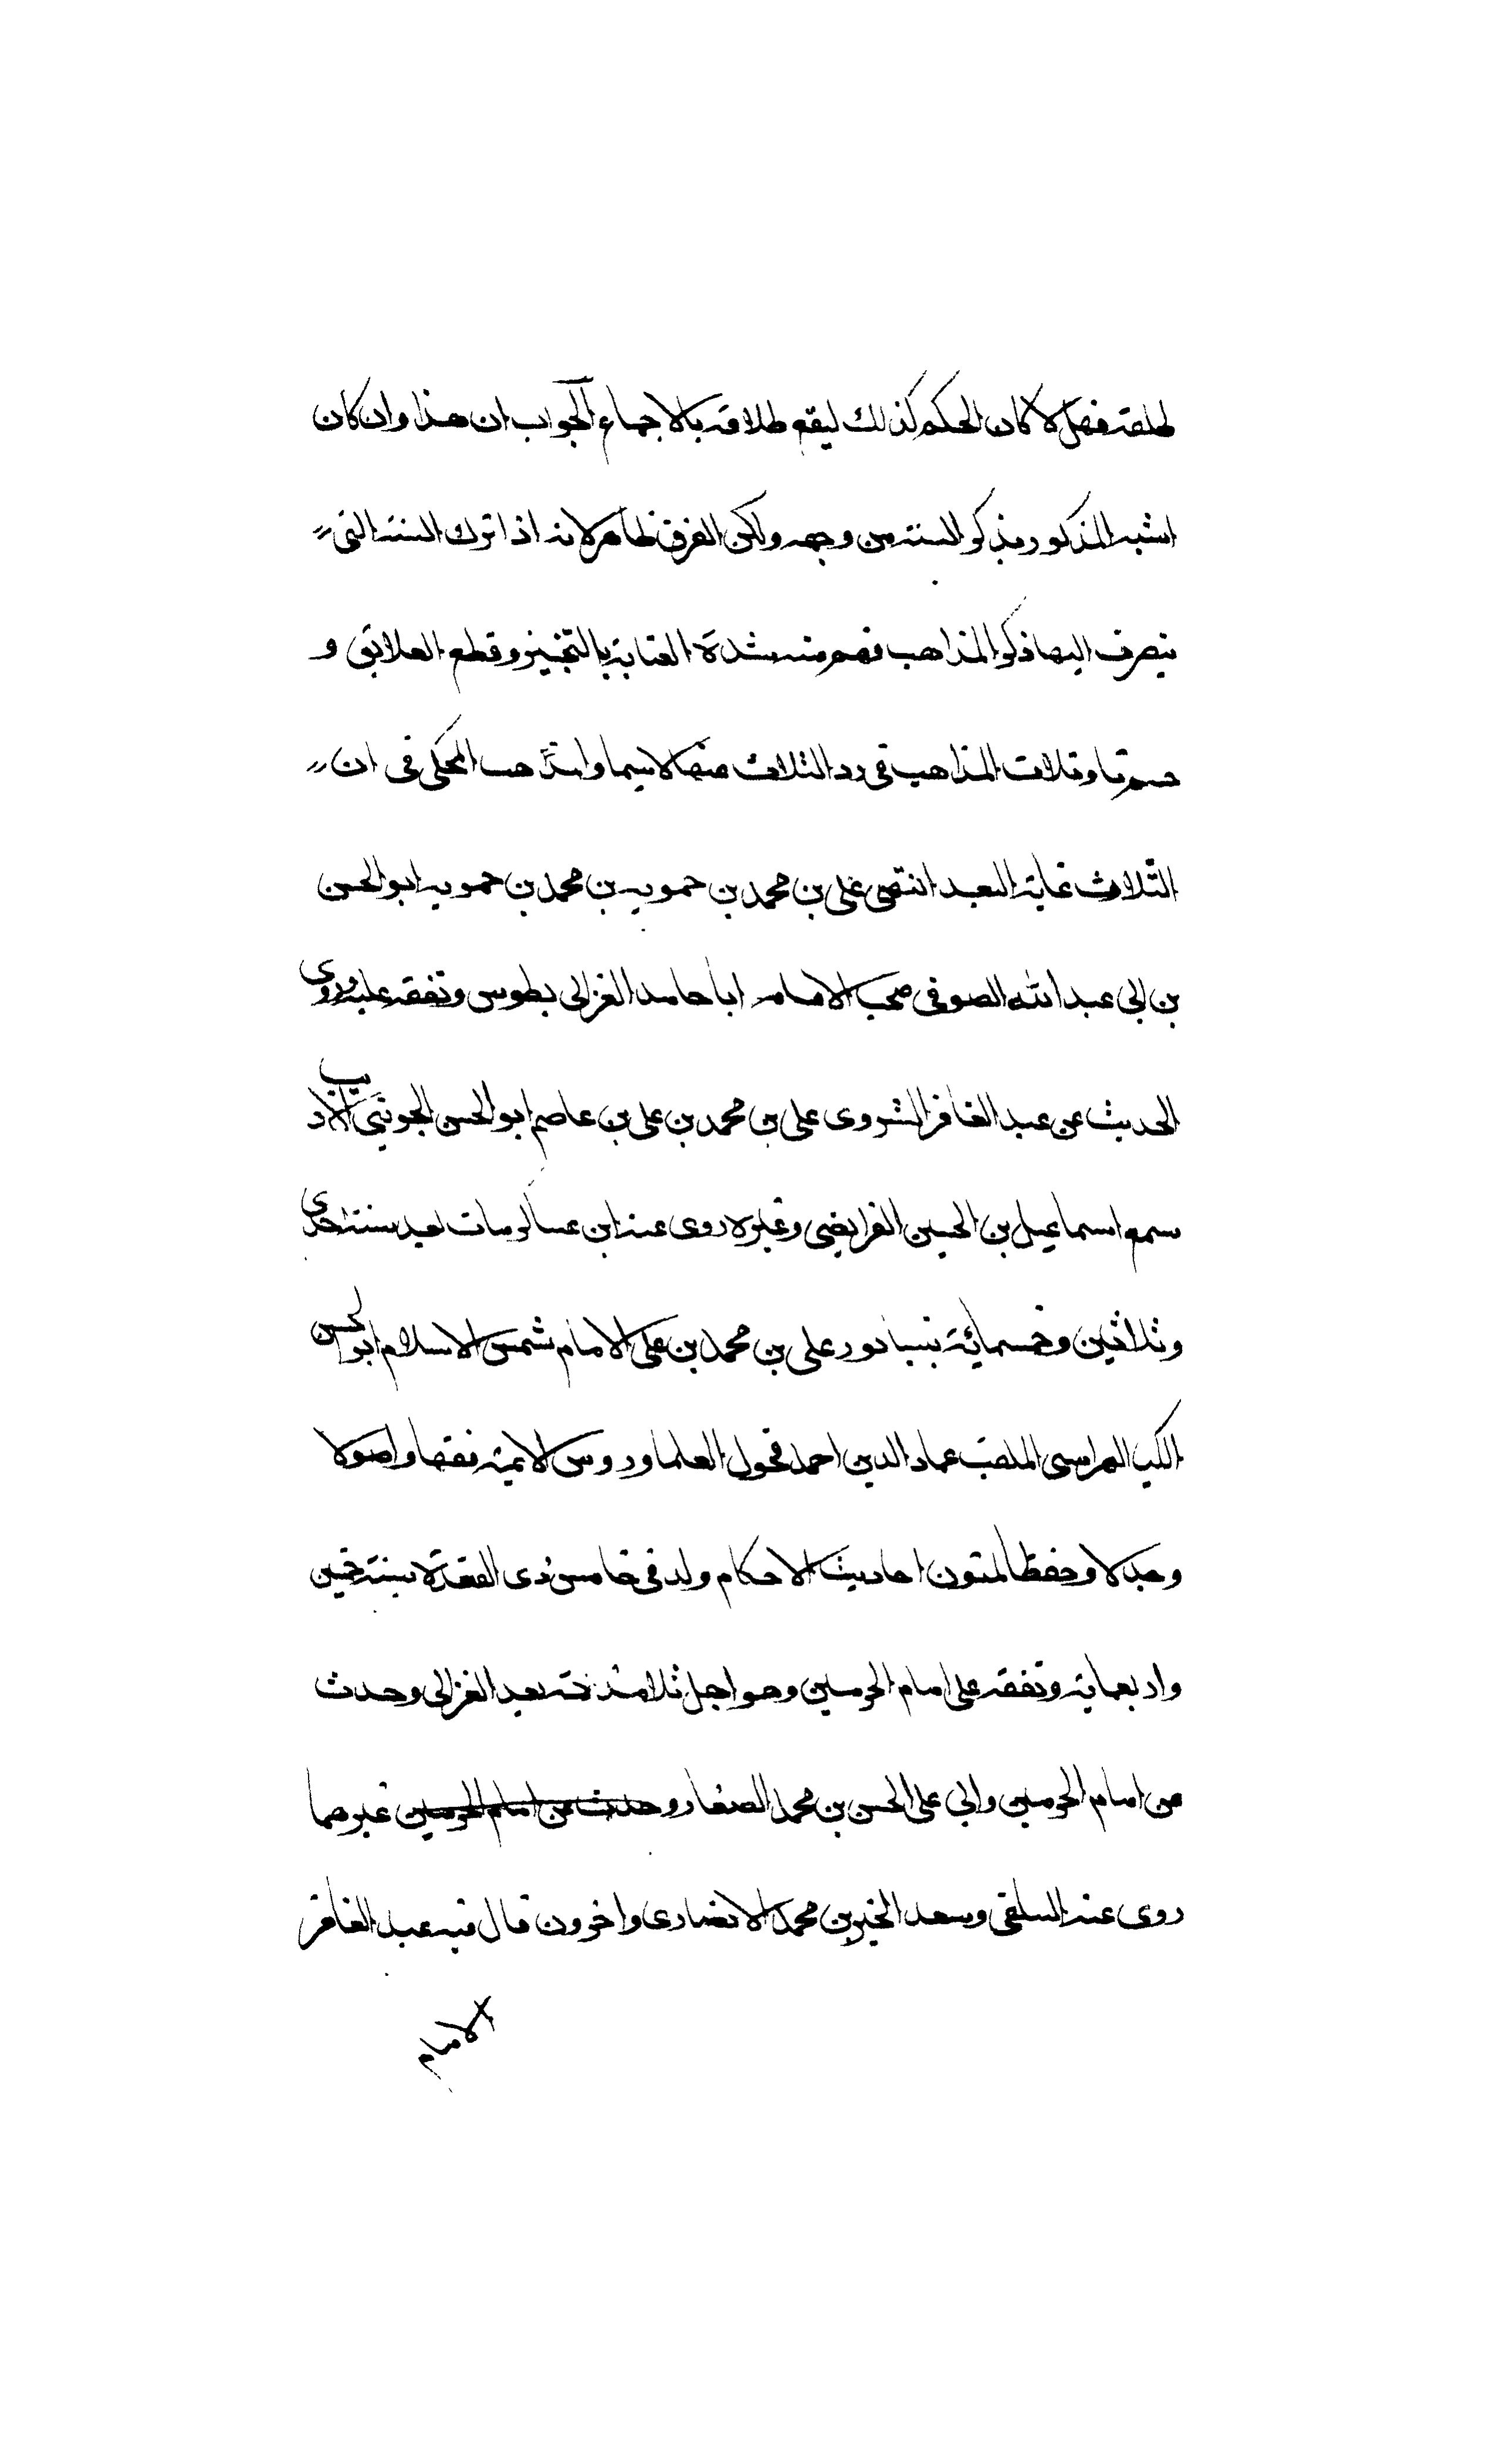 طلقة فهل لا كان الحكم كذلك ليقع طلاقه بالاجماع الجواب ان هذا وان كان
اشبه المذكور مذكو السنة من وجهه ولكن الفرق ظاهر لانه اذا ترك السنة التي
ينصرف اليها ذكو المذاهب فهم منه شدة العناية بالتنجيز وقطع العلائق و
حسم تاويلات المذاهب في رد الثلاث عنها لا سيما والمذهب المحكي في ان
الثلاث غاية البعد انتهى علي بن محمد بن حمويه بن محمد بن حمويه ابو الحسن
بن ابي عبد الله الصوفي صحب الامام ابا حامد الغزالي بطوس وتفقه عليه وروى
الحديث عن عبد الغافر الشروى علي بن محمد بن علي بن عاصم ابو الحسن الجويني الاديب
سمع اسماعيل بن الحسين الفرايضي وغيره روى عنه ابن عساكر مات بعد سنة احدى
وثلاثين وخمسمائة بنيسابور علي بن محمد بن علي الامام شمس الاسلام ابو الحسن
الكيا الهراسي الملقب عماد الدين احد فحول العلما وروس الائمة فقها واصولا
وجدلا وحفظا لمتون احاديث الاحكام ولد في خامس ذى القعدة سنة خمسين
واربعماية وتفقه على امام الحرمين وهو اجل تلامذته بعد الغزالي وحدث
عن امام الحرمين وابي علي الحسن بن محمد الصفار وحدث عن امام الحرمين غيرهما
روى عنه السلفي وسعد الخير بن محمد الانصارى واخرون قال فيه عبد الغافر
الامام